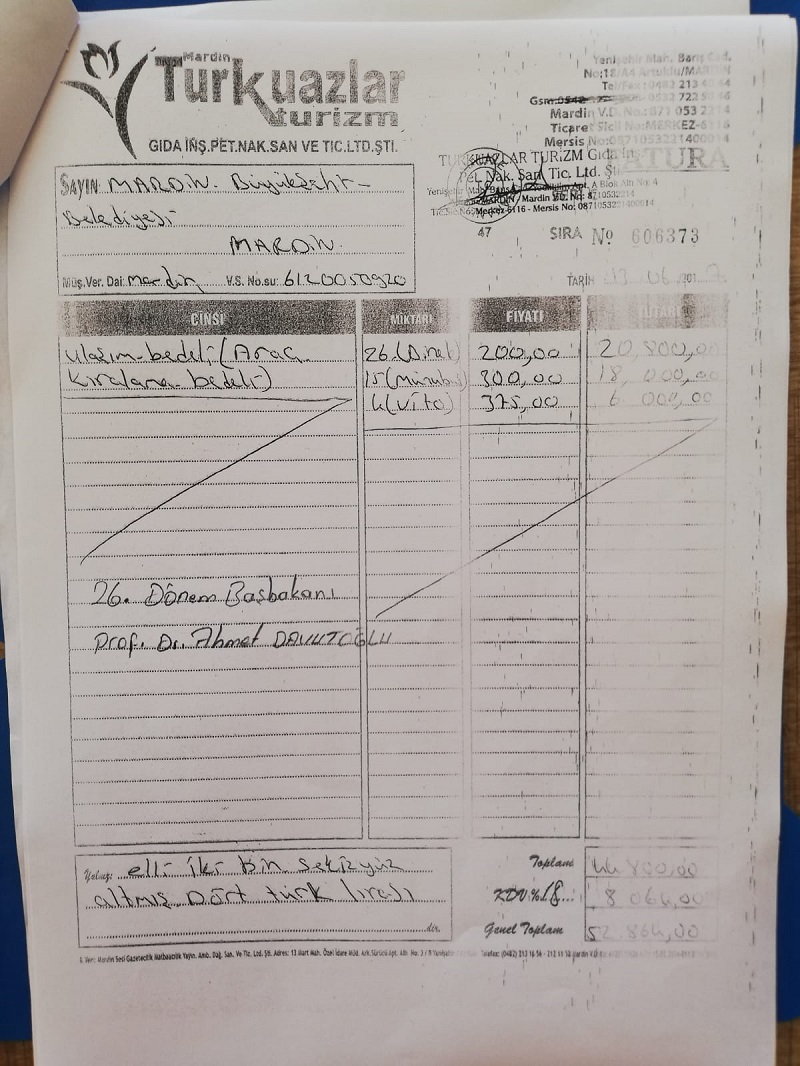 Mardin
Turkuazlar
turizm
GIDA İNŞ.PET.NAK.SAN VE TİC.LTD.ŞTİ.
Yenişehir Mah. Barış Cad.
No:18/A4 Artuklu/MARDİN
Tel/Fax:0482 213
Gsm:0542 0532 723
Mardin V.D. No.:871 053 2214
Ticaret Sicil No:MERKEZ-6116
Mersis No:0871053221400014
FATURA
TURKUAZLAR TURİZM Gıda İnş.
Pet. Nak. San. Tic. Ltd. Şti.
Yenişehir Mah. Apt. A Blok Altı No: 4
MARDİN / Mardin V.D. No: 8710532214
Merkez-6116 - Mersis No:
SAYIN MARDİN Büyükşehir
Belediyesi
MARDİN
Müş.Ver. Dai: mardin V.S. No.su: 6120050920
47 SIRA № 606373
TARİH 13.06.2017
CİNSİ MİKTARI FİYATI TUTARI
Ulaşım bedeli (Araç 26.(Binek) 200,00 20 800,00
Kiralama bedeli) 15(minubüs) 300,00 18,000,00
4(Vito) 375,00 6 000,00
26. Dönem Başbakanı
Prof. Dr. Ahmet DAVUTOĞLU
Yalnız: elli iki bin sekizyüz
altmış Dört türk lirası
dir.
Toplam 44 800,00
KDV % 18 8 064,00
Genel Toplam 52 864,00
Mardin Sesi Gazetecilik Matbaacılık Yayın. Amb. Dağ. San. Ve Tic. Ltd. Şti. Adres: 13 Mart Mah. Özel İdare Müd. Ark.